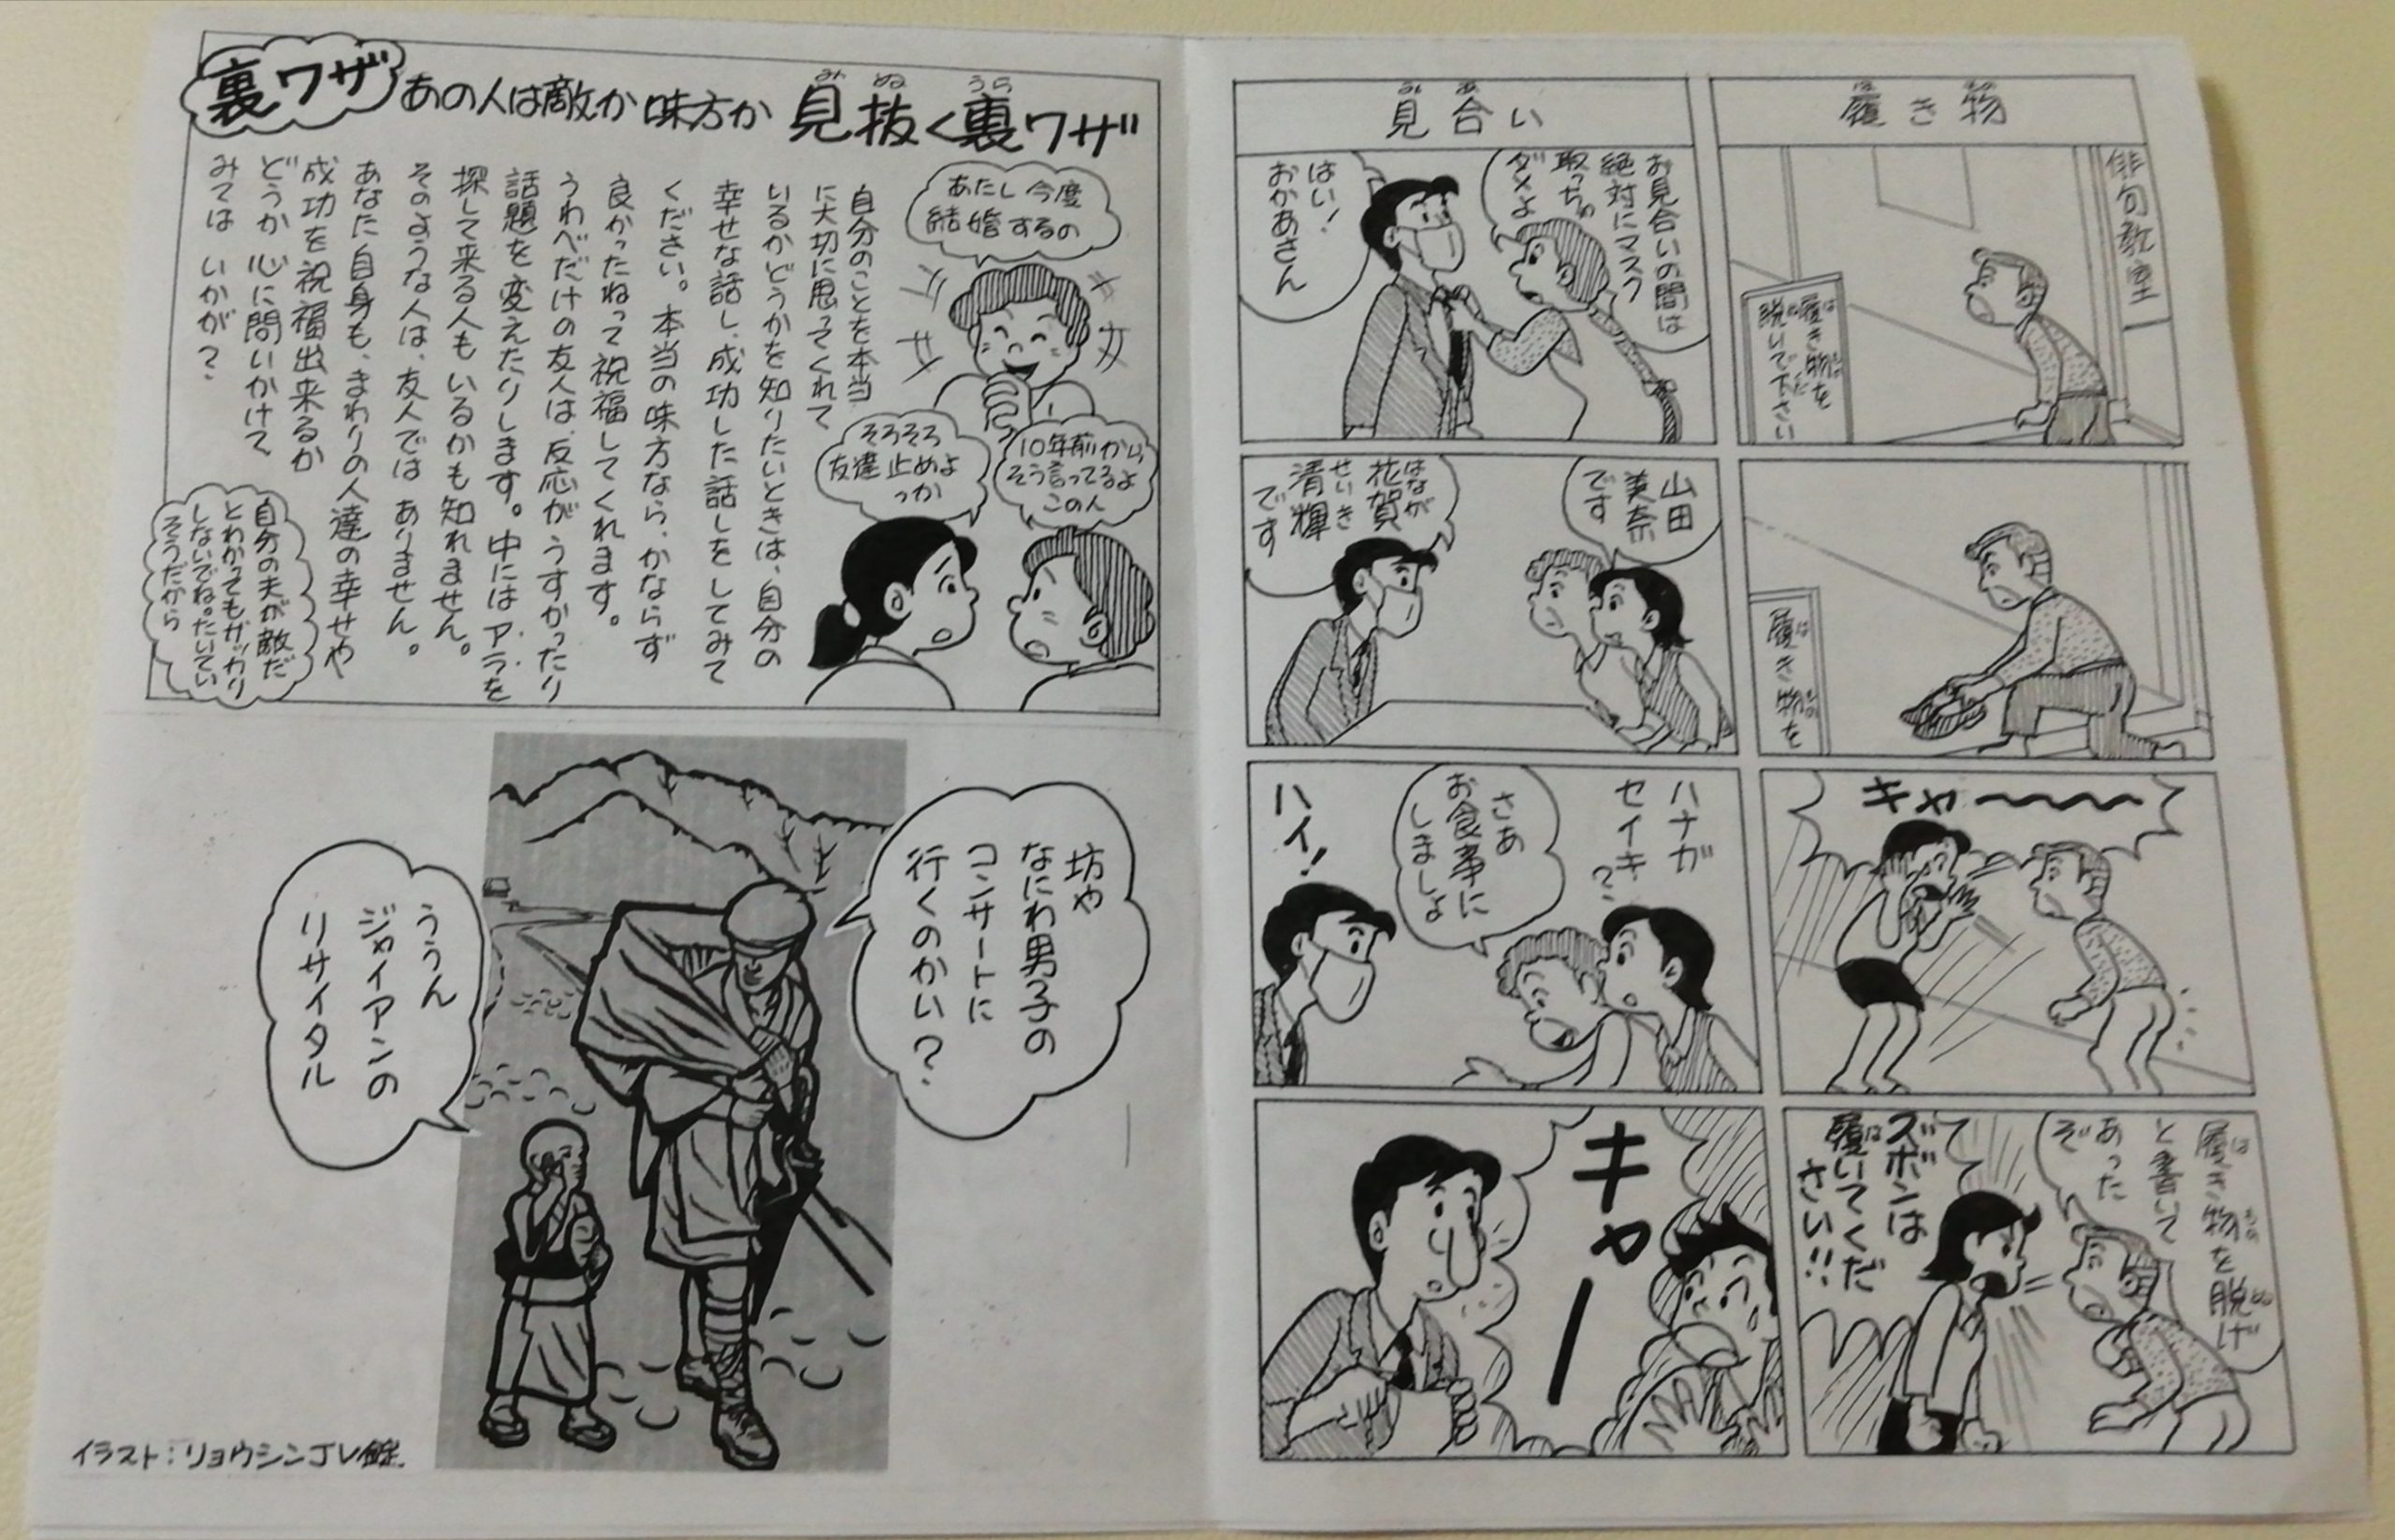 履き物
はもの
俳句教室
履き物を
はもの
脱いで下さい
ぬくだ
履き物を
はもの
キャ～～～～
履き物を脱げ
はものぬ
と書いて
あった
ぞ
ズボンは
履いてくだ
は
さい!!
見合い
みあ
お見合いの間は
絶対にマスク
取っちゃ
ダメよ
はい!
おかあさん
山田
美奈
です
花賀
はなが
清輝
せいき
です
ハナガ
セイキ?
さあ
お食事に
しましょ
ハイ!
キャー
裏ワザ
あの人は敵か味方か 見抜く裏ワザ
みぬうら
あたし今度
結婚するの
10年前から
そう言ってるよ
この人
そろそろ
友達止めよ
っか
自分のことを本当
に大切に思ってくれて
いるかどうかを知りたいときは、自分の
幸せな話し、成功した話しをしてみて
ください。本当の味方なら、かならず
良かったねって祝福してくれます。
うわべだけの友人は、反応がうすかったり
話題を変えたりします。中にはアラを
探して来る人もいるかも知れません。
そのような人は、友人ではありません。
あなた自身も、まわりの人達の幸せや
成功を祝福出来るか
どうか心に問いかけて
みてはいかが?
自分の夫が敵だ
とわかってもガッカリ
しないでね。たいてい
そうだから
坊や
なにわ男子の
コンサートに
行くのかい?
ううん
ジャイアンの
リサイタル
イラスト:リョウシンゴレ錠.